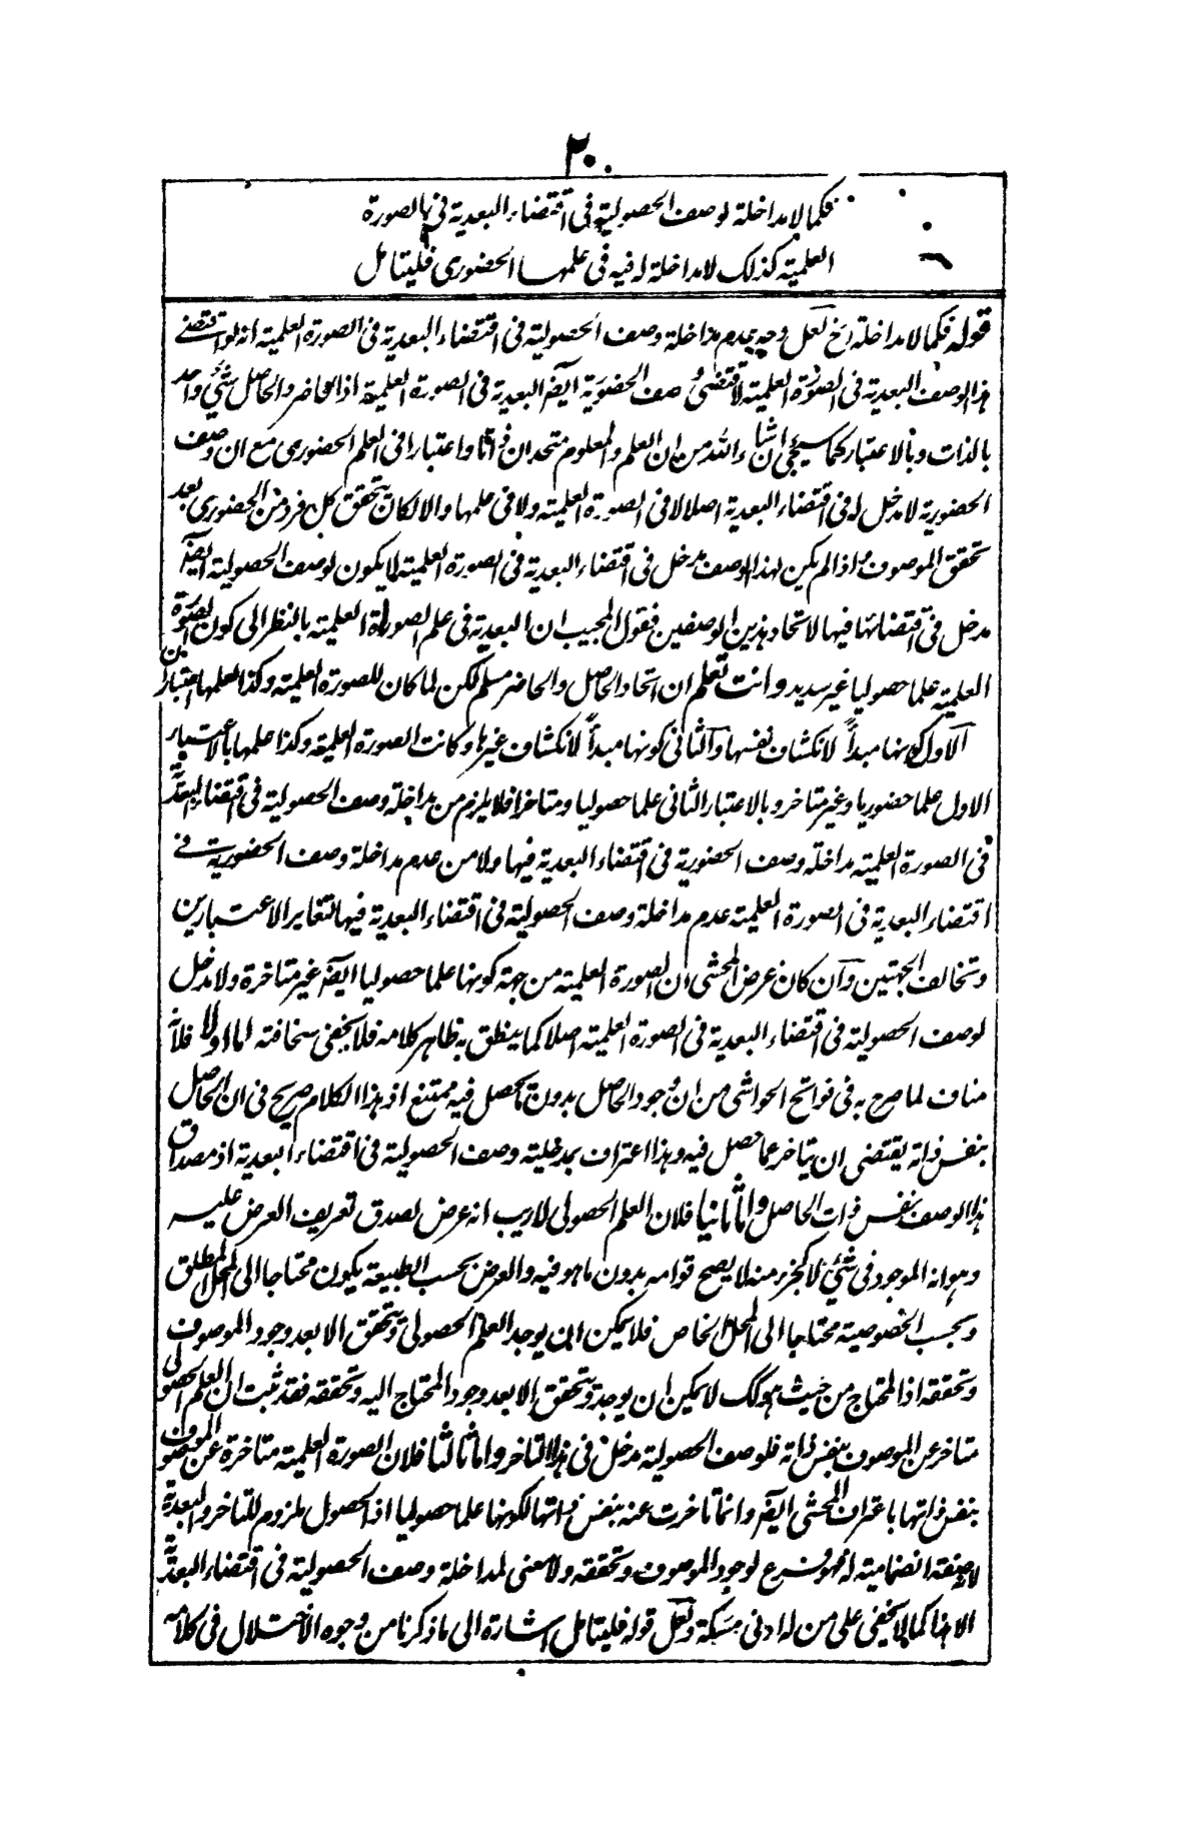 ٢٠
فكما لا مداخلة لوصف الحصولية في اقتضاء البعدية في الصورة
العلمية كذلك لا مداخلة له فيه في علمها الحضوري فليتامل
قوله فكما لا مداخلة الخ لعل وجه عدم مداخلة وصف الحصولية في اقتضاء البعدية في الصورة العلمية انه لو اقتضے
هذا الوصف البعدية في الصورة العلمية لاقتضى وصف الحضورية ايضا البعدية في الصورة العلمية اذ الحاضر والحاصل شئ واحد
بالذات وبالاعتبار كما سيجئ ان شاء الله من ان العلم والمعلوم متحدان ذاتا واعتبارا في العلم الحضوري مع ان وصف
الحضورية لا دخل له في اقتضاء البعدية اصلا لا في الصورة العلمية ولا في علمها والا لكان يتحقق كل فرد من الحضوري بعد
تحقق الموصوف واذا لم يكن لهذا الوصف مدخل في اقتضاء البعدية في الصورة العلمية لا يكون لوصف الحصولية ايضا
مدخل في اقتضائها فيها لاتحاد هذين الوصفين فقول المجيب ان البعدية في علم الصورة العلمية بالنظر الى كون الصورة
العلمية علما حصوليا غير سديد وانت تعلم ان اتحاد الحاصل والحاضر مسلم لكن لما كان للصورة العلمية وكذا لعلمها اعتباران
الاول كونها مبدأ لانكشاف نفسها والثاني كونها مبدأ لانكشاف غيرها وكانت الصورة العلمية وكذا علمها بالاعتبار
الاول علما حضوريا وغير متاخر وبالاعتبار الثاني علما حصوليا ومتاخرا فلا يلزم من مداخلة وصف الحصولية في اقتضاء البعدية
في الصورة العلمية مداخلة وصف الحضورية في اقتضاء البعدية فيها ولا من عدم مداخلة وصف الحضورية فے
اقتضاء البعدية في الصورة العلمية عدم مداخلة وصف الحصولية في اقتضاء البعدية فيها لتغاير الاعتبارين
وتخالف الجهتين وان كان غرض المحشي ان الصورة العلمية من جهة كونها علما حصوليا ايضا غير متاخرة ولا مدخل
لوصف الحصولية في اقتضاء البعدية في الصورة العلمية اصلا كما ينطق به ظاهر كلامه فلا يخفى سخافته اما اولا فلانه
مناف لما صرح به في فواتح الحواشي من ان وجود الحاصل بدون ما يحصل فيه ممتنع اذ هذا الكلام صريح في ان الحاصل
بنفس ذاته يقتضي ان يتاخر عما حصل فيه وهذا اعتراف بمدخلية وصف الحصولية في اقتضاء البعدية اذ مصداق
هذا الوصف بنفس ذات الحاصل واما ثانيا فلان العلم الحصولي لا ريب انه عرض لصدق تعريف العرض عليه
وهو انه الموجود في شئ لا كجزء منه لا يصح قوامه بدون ما هو فيه والعرض بحسب الطبيعة يكون محتاجا الى المحل المطلق
وبحسب الخصوصية محتاجا الى المحل الخاص فلا يمكن ان يوجد العلم الحصولي ويتحقق الا بعد وجود الموصوف
وتحققه اذ المحتاج من حيث هو كك لا يمكن ان يوجد ويتحقق الا بعد وجود المحتاج اليه وتحققه فقد ثبت ان العلم الحصولي
متاخر عن الموصوف بنفس ذاته فلوصف الحصولية مدخل في هذا التاخر واما ثالثا فلان الصورة العلمية متاخرة عن الموصوف
بنفس ذاتها باعتراف المحشي ايضا وانما تاخرت عنه بنفس ذاتها لكونها علما حصوليا اذ الحصول ملزوم للتاخر والبعدية
لانه صفة انضمامية له فهو فرع لوجود الموصوف وتحققه ولا معنى لمداخلة وصف الحصولية في اقتضاء البعدية
الا هذا كما لا يخفى على من له ادنى مسكة ولعل قوله فليتامل اشارة الى ما ذكرنا من وجوه الاختلال في كلامه